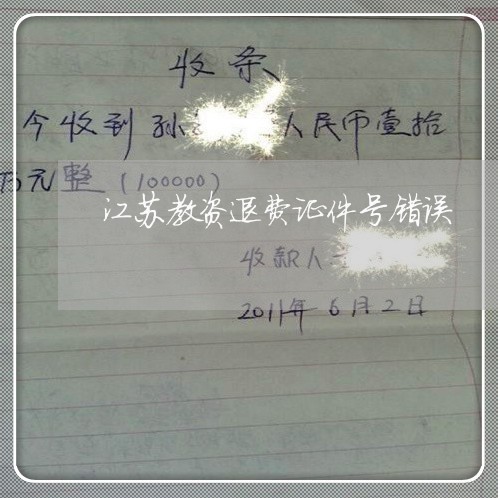 收条
今收到孙 人民币壹拾
万元整（100000）
江苏教资退费证件号错误
收款人
2011年6月2日